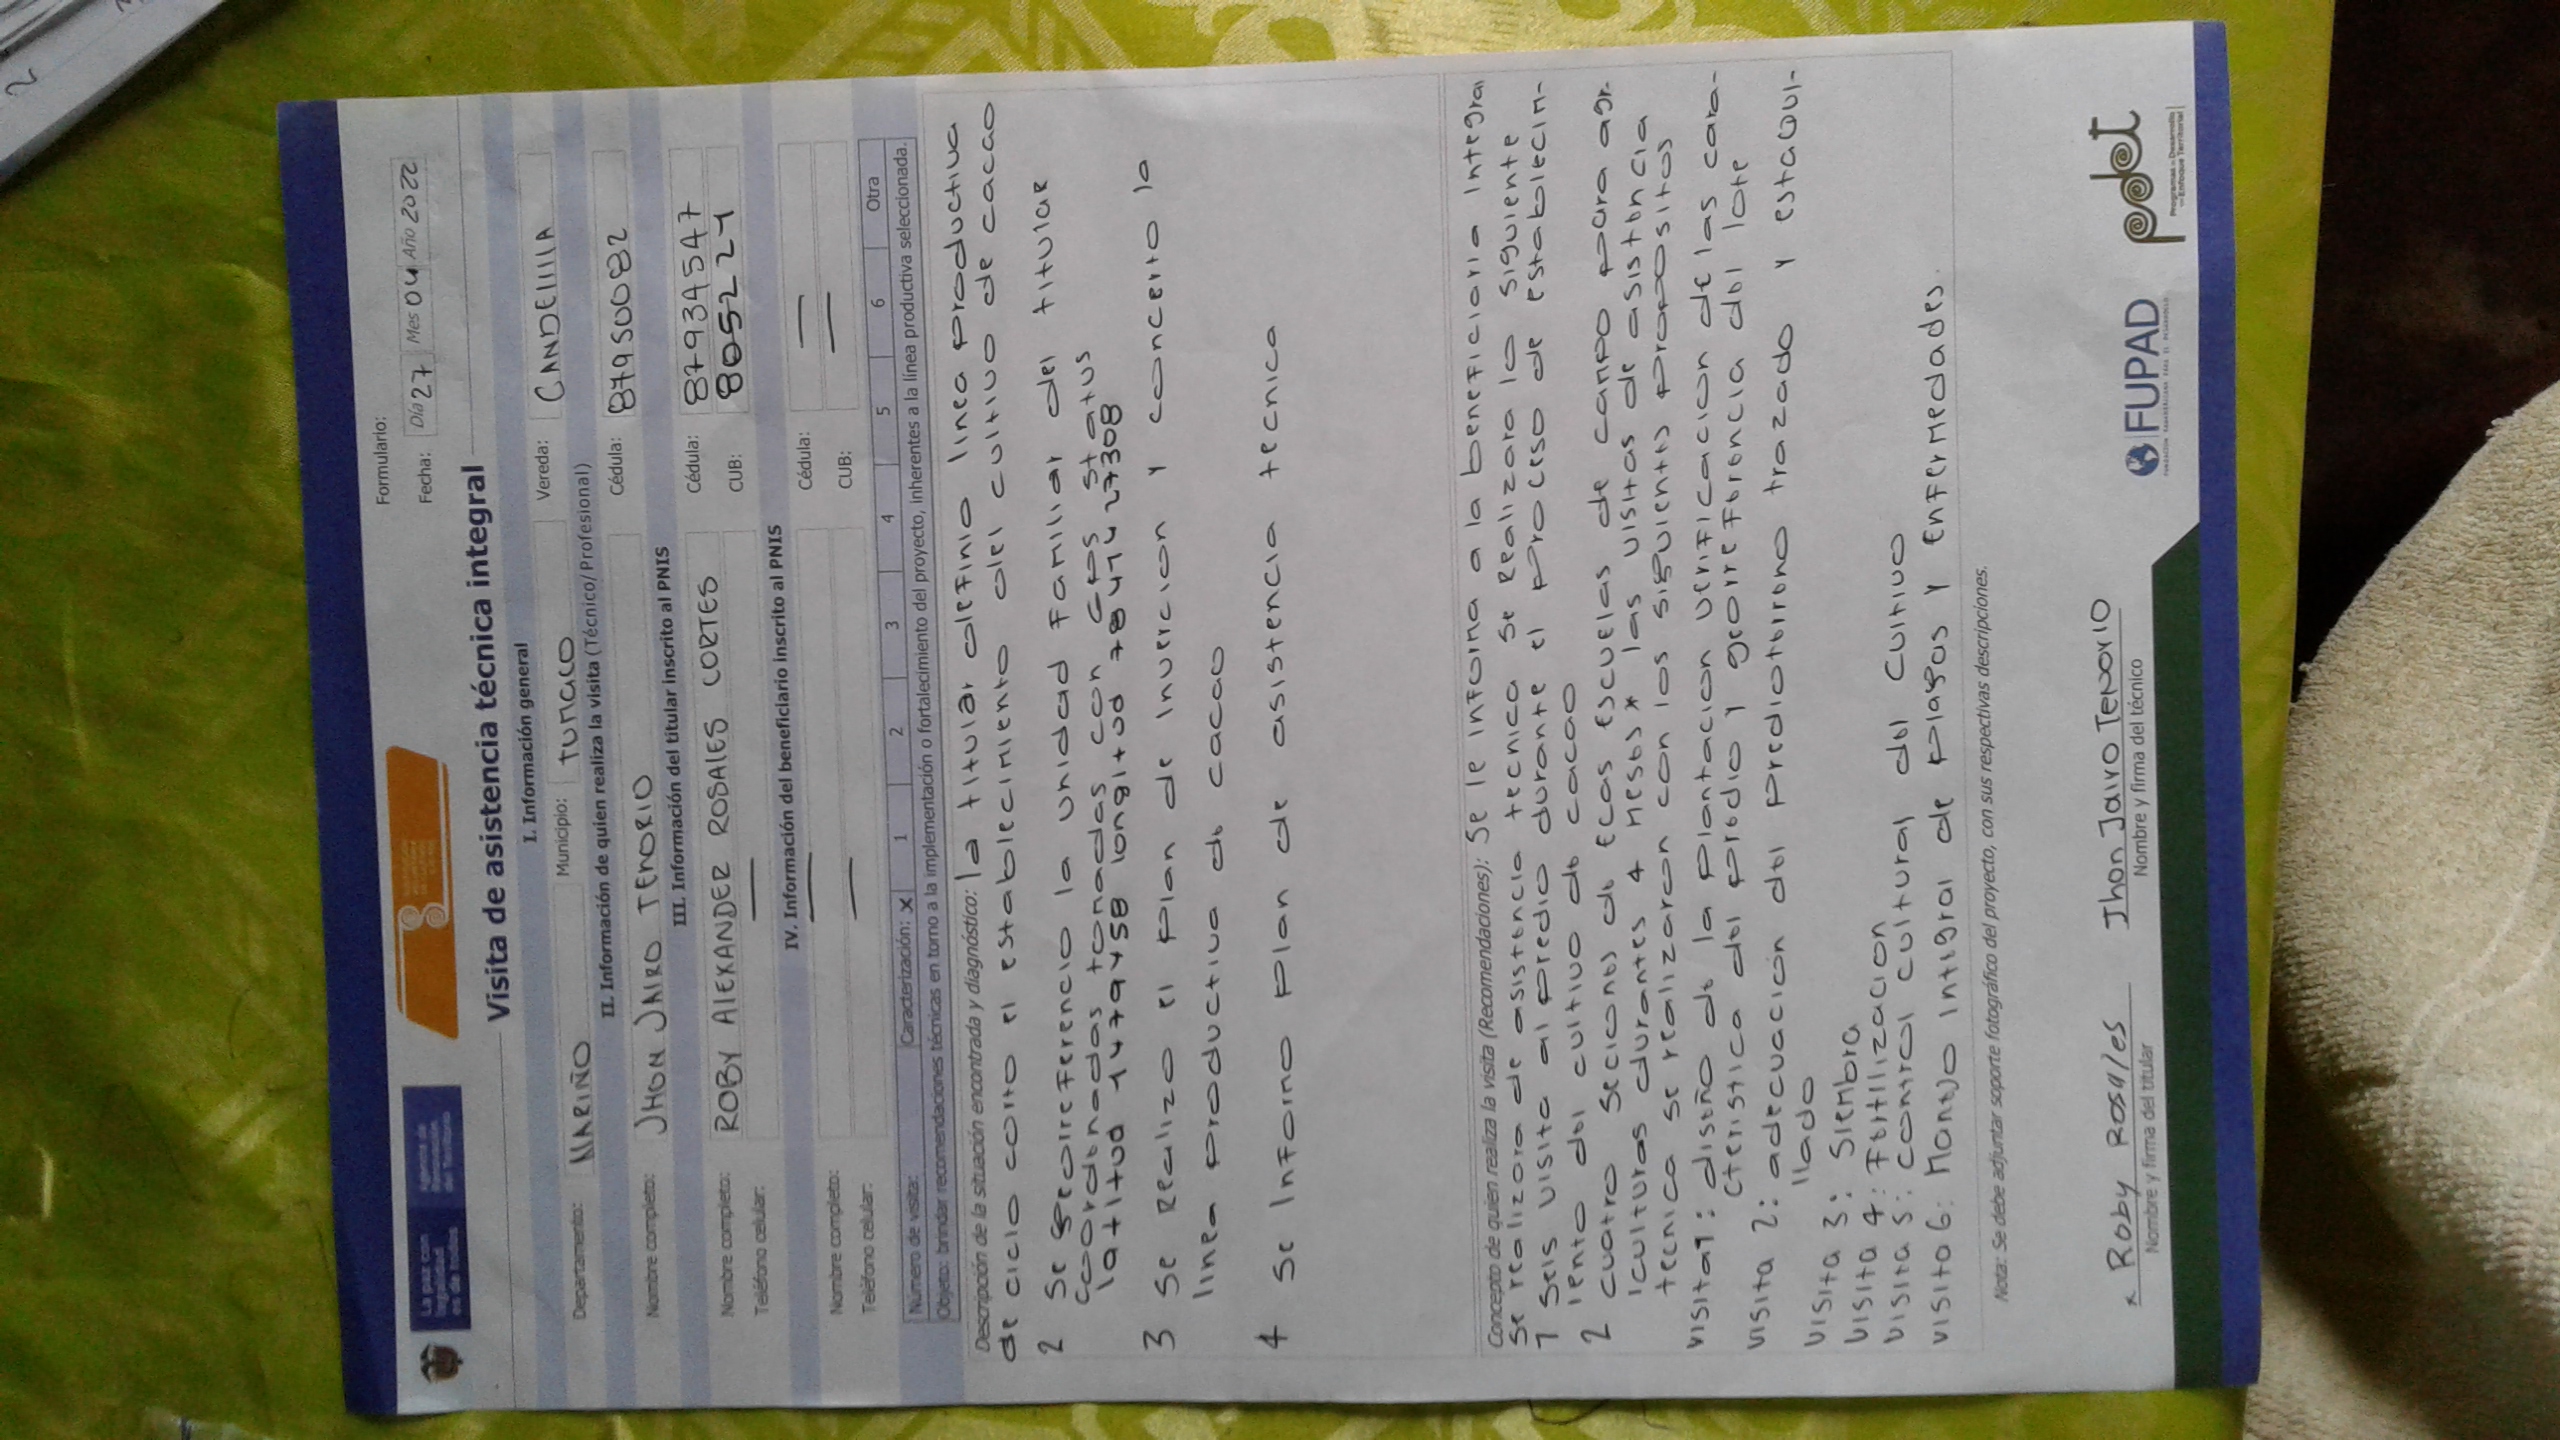 La paz con legalidad es de todos
Agencia de Renovación del Territorio
Formulario:
Fecha: Día 27 Mes 04 Año 2022
Visita de asistencia técnica integral
I. Información general
Departamento: NARIÑO Municipio: tumaco Vereda: CANDEIIIIA
II. Información de quien realiza la visita (Técnico/Profesional)
Nombre completo: JHON JAIRO TENORIO Cédula: 87950082
III. Información del titular inscrito al PNIS
Nombre completo: ROBY AlEXANDER ROSALES CORTES Cédula: 87934547
Teléfono celular: — CUB: 805224
IV. Información del beneficiario inscrito al PNIS
Nombre completo: — Cédula: —
Teléfono celular: — CUB: —
Número de visita: Caracterización: X 1 2 3 4 5 6 Otra
Objeto: brindar recomendaciones técnicas en torno a la implementación o fortalecimiento del proyecto, inherentes a la línea productiva seleccionada.
Descripción de la situación encontrada y diagnóstico: la titular definio linea productiva
de ciclo corto el establecimiento del cultivo de cacao
2 Se georreferencio la unidad familiar del titular
coordonadas tomadas con GPS status
latitud 1479458 longitud 78474 27308
3 Se Realizo el plan de invercion y concerto la
linea productiva de cacao
4 Se informo plan de asistencia tecnica
Concepto de quien realiza la visita (Recomendaciones): Se le informa a la beneficiaria integral
Se realizara de asistencia tecnica se Realizara lo siguiente
1 Seis visita al predio durante el proceso de establecim-
iento del cultivo de cacao
2 cuatro seciones de ecas escuelas de campo para agr-
iculturas durantes 4 meses * las visitas de asistencia
tecnica se realizaran con los siguientes propositos
visita1: diseño de la plantacion verificacion de las cara-
cteristica del predio y georreferencia del lote
visita 2: adecuación del predioterreno trazado y estaqui-
llado
visita 3: Siembra
visita 4: Fertilizacion
visita 5: control cultural del cultivo
visita 6: Manejo integral de plagas y Enfermedades.
Nota: Se debe adjuntar soporte fotográfico del proyecto, con sus respectivas descripciones.
x Roby Rosales Jhon Jairo Tenorio
Nombre y firma del titular Nombre y firma del técnico
FUPAD
pdet
Programas de Desarrollo con Enfoque Territorial